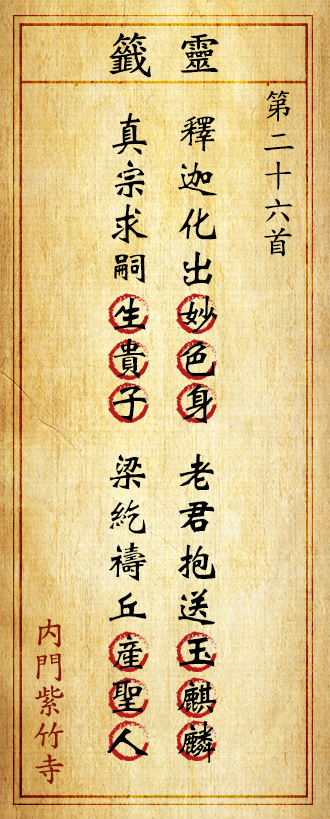 靈籤
第二十六首
釋迦化出妙色身 老君抱送玉麒麟
真宗求嗣生貴子 梁紇禱丘產聖人
內門紫竹寺